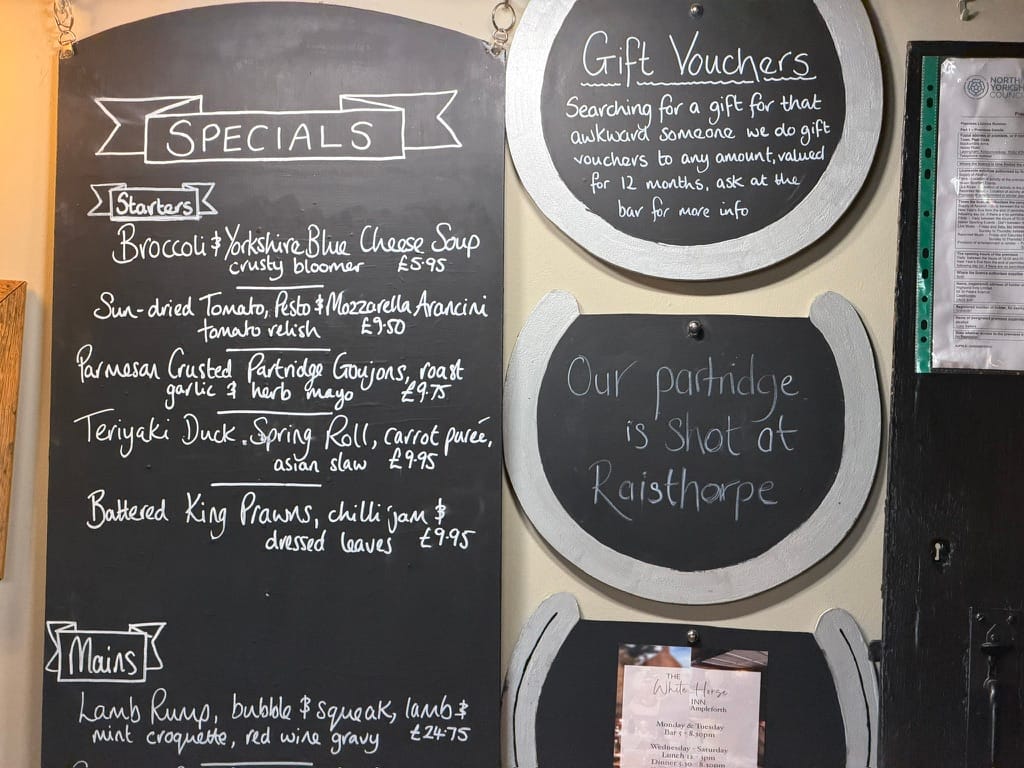 SPECIALS
Starters
Broccoli & Yorkshire Blue Cheese Soup
crusty bloomer £5.95
Sun-dried Tomato, Pesto & Mozzarella Arancini
tomato relish £9.50
Parmesan Crusted Partridge Goujons, roast
garlic & herb mayo £9.75
Teriyaki Duck Spring Roll, carrot purée,
asian slaw £9.95
Battered King Prawns, chilli jam &
dressed leaves £9.95
Mains
Lamb Rump, bubble & squeak, lamb &
mint croquette, red wine gravy £24.75
Gift Vouchers
Searching for a gift for that
awkward someone we do gift
vouchers to any amount, valued
for 12 months, ask at the
bar for more info
Our partridge
is shot at
Raisthorpe
THE
White Horse
INN
Ampleforth
Monday & Tuesday
Bar 5 - 8.30pm
Wednesday - Saturday
Lunch 12 - 3pm
Dinner 5.30 - 8.30pm
NORTH
YORKSHIRE
COUNCIL